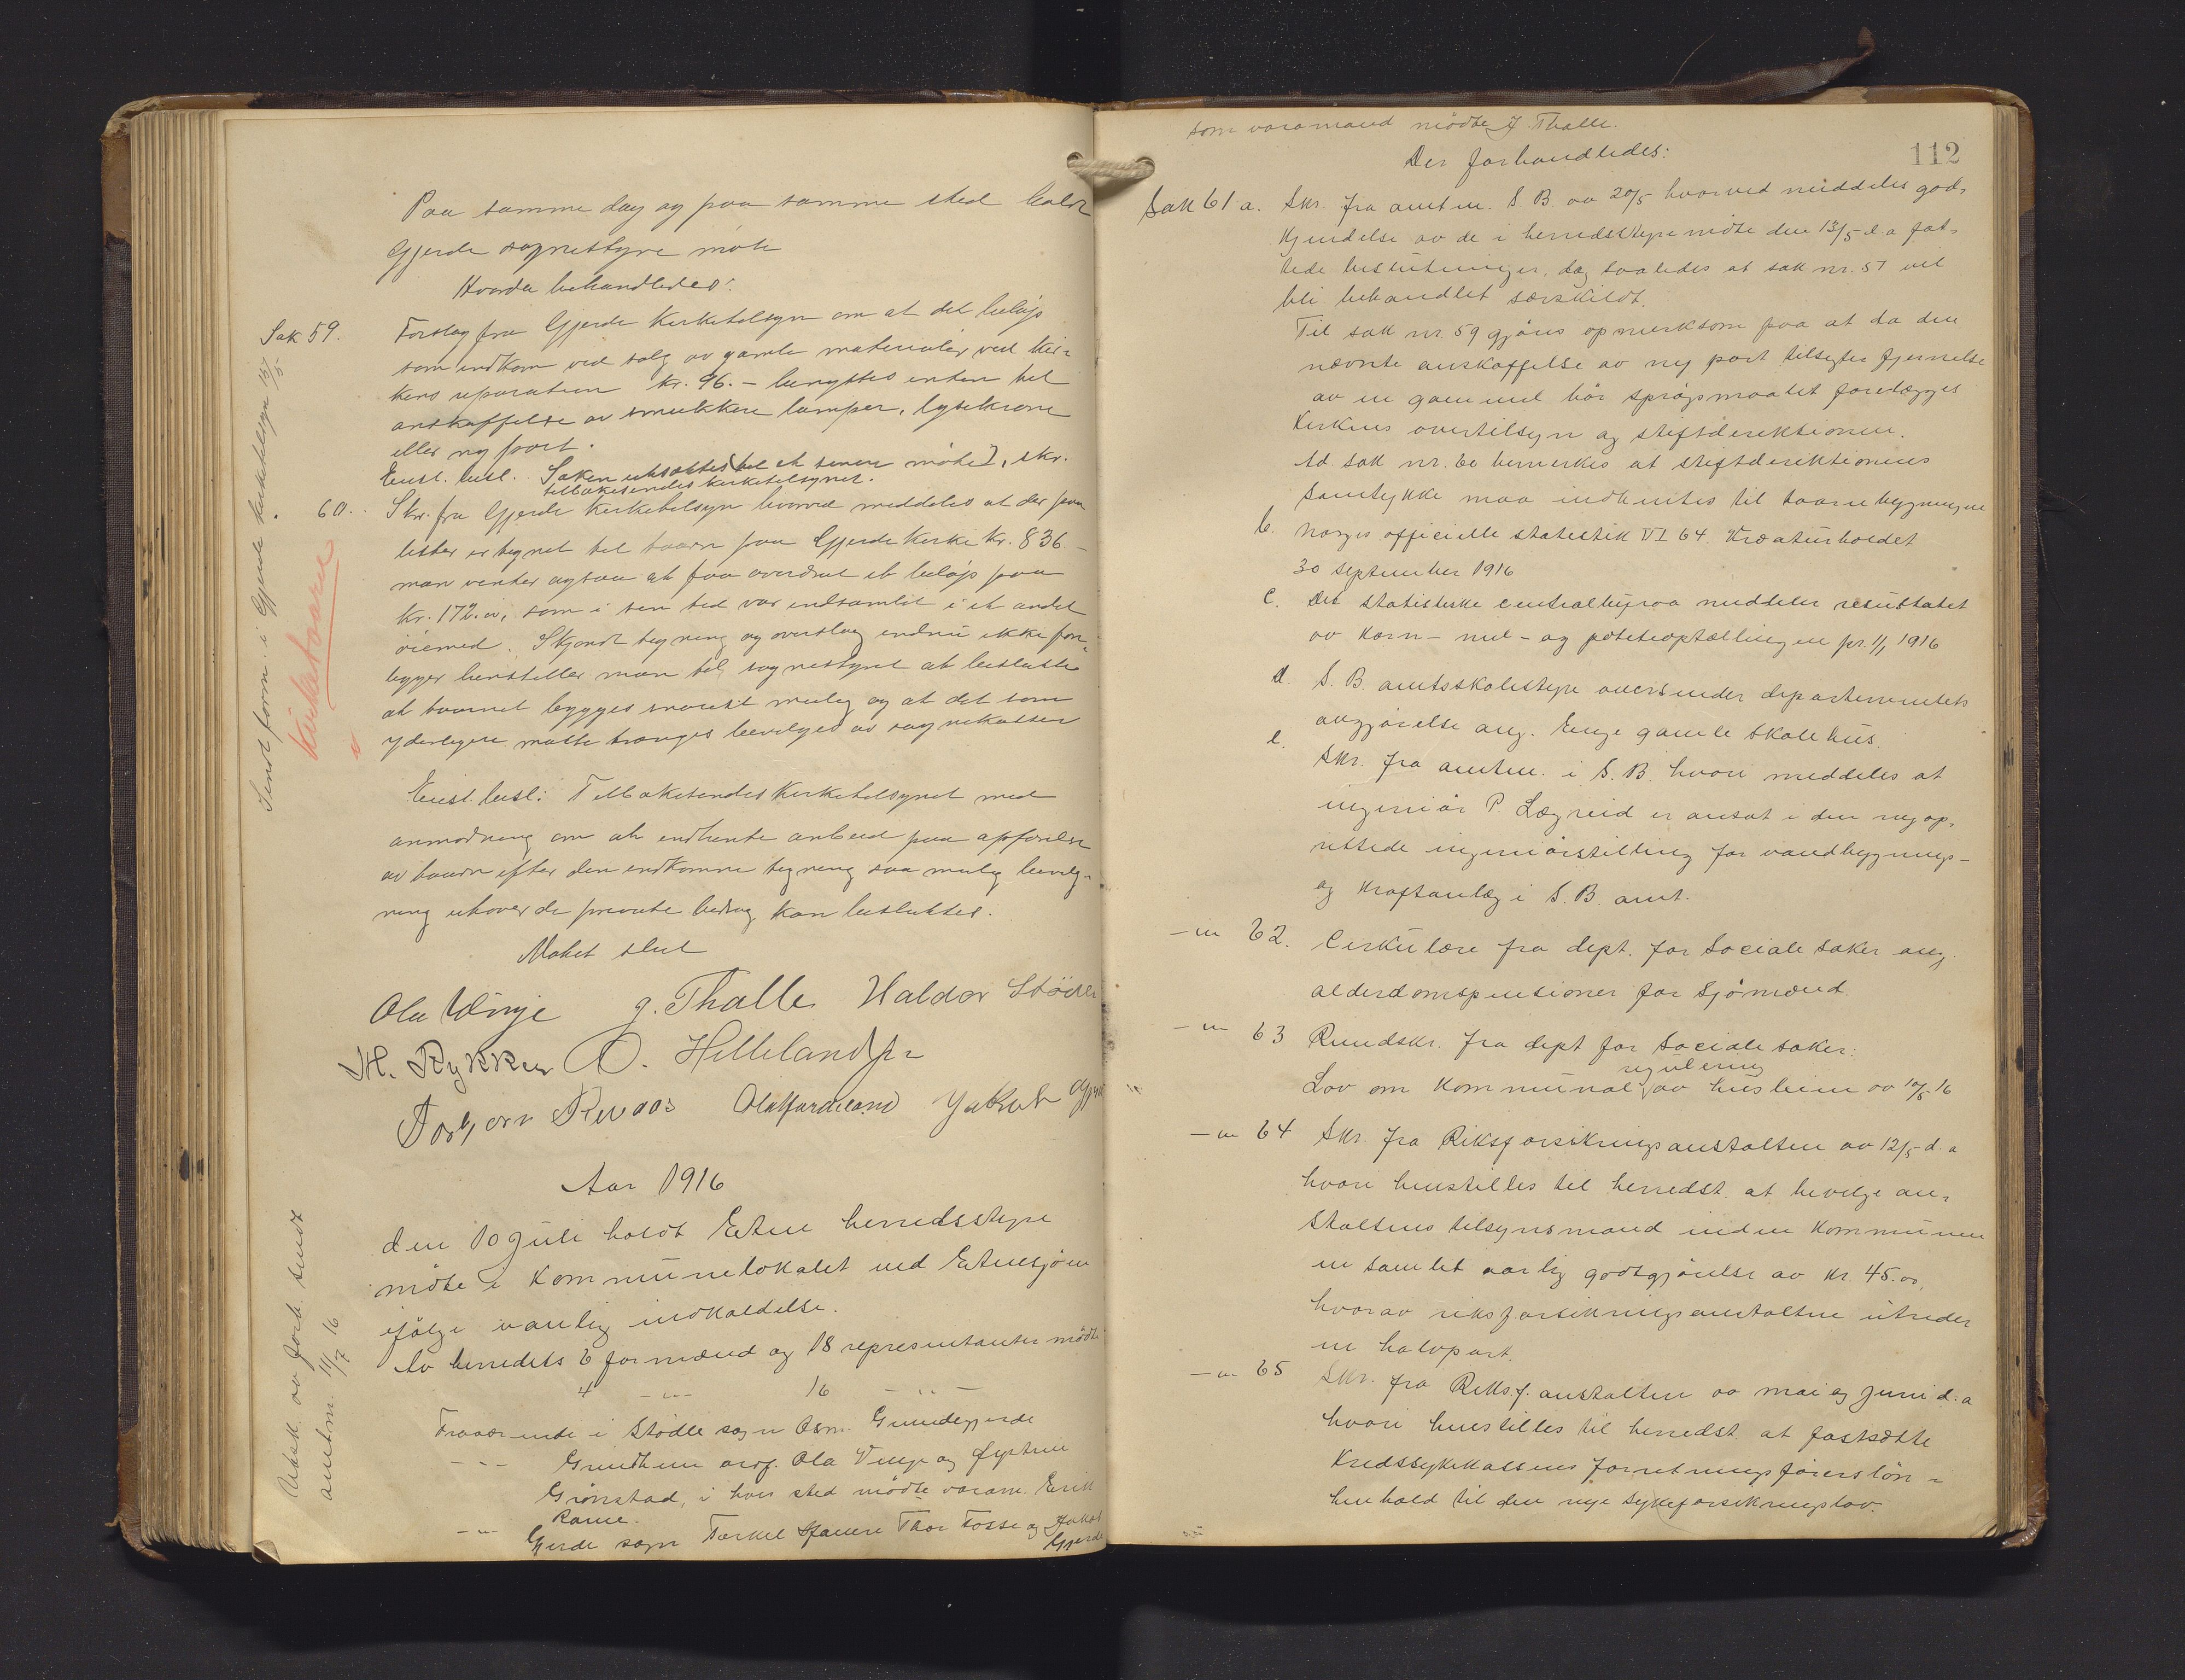 Paa samme dag og paa samme sted holdt
Gjerde sognestyre møte
Hvorda behandledes:
Sak 59. Forslag fra Gjerde Kirketilsyn om at det beløp
som indkom ved salg av gamle materialer ved kir-
kens reparation kr. 96.- benyttes enten til
anskaffelse av smukkere lamper, lysekrone
eller ny port.
Enst. besl. Saken utsættes til et senere møte, skr.
tilbakesendes kirketilsynet.
60. Skr. fra Gjerde Kirketilsyn hvorved meddeles at der paa
lister er tegnet til taarn paa Gjerde Kirke Kr. 836.-
man venter ogsaa at faa overdrat et beløp paa
kr. 172.00, som i sen tid var indsamlet i et andet
øiemed. Skjønt tegning og overslag endnu ikke fore-
ligger henstiller man til sognestyret at beslutte
at taarnet bygges snarest mulig og at det som
yderligere maatte trænges bevilges av sognekassen
Enst. besl: Tilbakesendes Kirketilsynet med
anmodning om at indhente anbud paa opførelse
av taarn efter den indkomne tegning saa mulig bevilg-
ning utover de private bidrag kan besluttes.
Møtet slut
Ola Vinje J. Thalle Haldor Stödle
M. Rykken O. Helleland jr
Torbjørn Revaas Ola Mardland Jakob Gjerde
Sendt form. i Gjerde kirketilsyn 15/5
Kirketaarn
Aar 1916
den 10 Juli holdt Etne herredsstyre
møte i Kommunelokalet ved Etnesjøen
ifølge vanlig indkaldelse.
Av herredets 6 formænd og 18 representanter mødte
4 -"- 16 -"-
Fraværende i Stødle sogn Asm. Grindegjerde
-"- Grindheim ordf. Ola Vinje og Øystein
Grönstad, i hvis sted mødte varam. Erik
Rame.
-"- Gjerde sogn Torkel Ffauere Thor Fosse og Jakob
Gjerde
Utskr. av forh. sendt
amtm. 11/7 16
112
som varamand mödte J. Thalle.
Der forhandledes:
Sak 61 a. Skr. fra amtm. S B av 20/5 hvorved meddeles god-
kjendelse av de i herredsstyremöte den 13/5 d.a fat-
tede beslutninger, dog saaledes at sak nr. 57 vil
bli behandlet særskildt.
Til sak nr. 59 gjøres opmerksom paa at da den
nævnte anskaffelse av ny port tilsigter fjernelse
av en gammel bör spörgsmaalet forelægges
Kirkens overtilsyn og stiftsdirektionen.
Ad. sak nr. 60 bemerkes at stiftdirektionens
samtykke maa indhentes til taarnbygningen
b. Norges officielle statistik VI 64. Kreaturholdet
30 September 1916
c. Det statistiske centralbyraa meddeler resultatet
av Korn- mel- og potetoptællingen pr. 1/1 1916
d. S. B. amtsskolestyre oversender departementets
avgjørelse ang. Enge gamle Skolehus.
e. Skr. fra amtm. i S. B. hvori meddeles at
ingeniør P. Lægreid er ansat i den nyop-
rettede ingeniørstilling for vandbygnings-
og Kraftanlæg i S. B. amt.
-"- 62. Cirkulære fra dept. for Sociale saker ang.
alderdomspensioner for Sjömænd.
-"- 63 Rundskr. fra dept for Sociale saker:
regulering
Lov om Kommunal av husleien av 10/5 16
-"- 64 Skr. fra Riksforsikringsanstalten av 12/5 d. a
hvori henstilles til herredst. at bevilge an-
staltens tilsynsmand inden Kommunen
en samlet aarlig godtgjörelse av kr. 45.00,
hvorav riksforsikringsanstalten utreder
en halvpart.
-"- 65 Skr. fra Riksf. anstalten av mai og juni d.a
hvori henstilles til herredst. at fastsætte
Kredssykekassens forretningsförers lön i
henhold til den nye sykeforsikringslov.